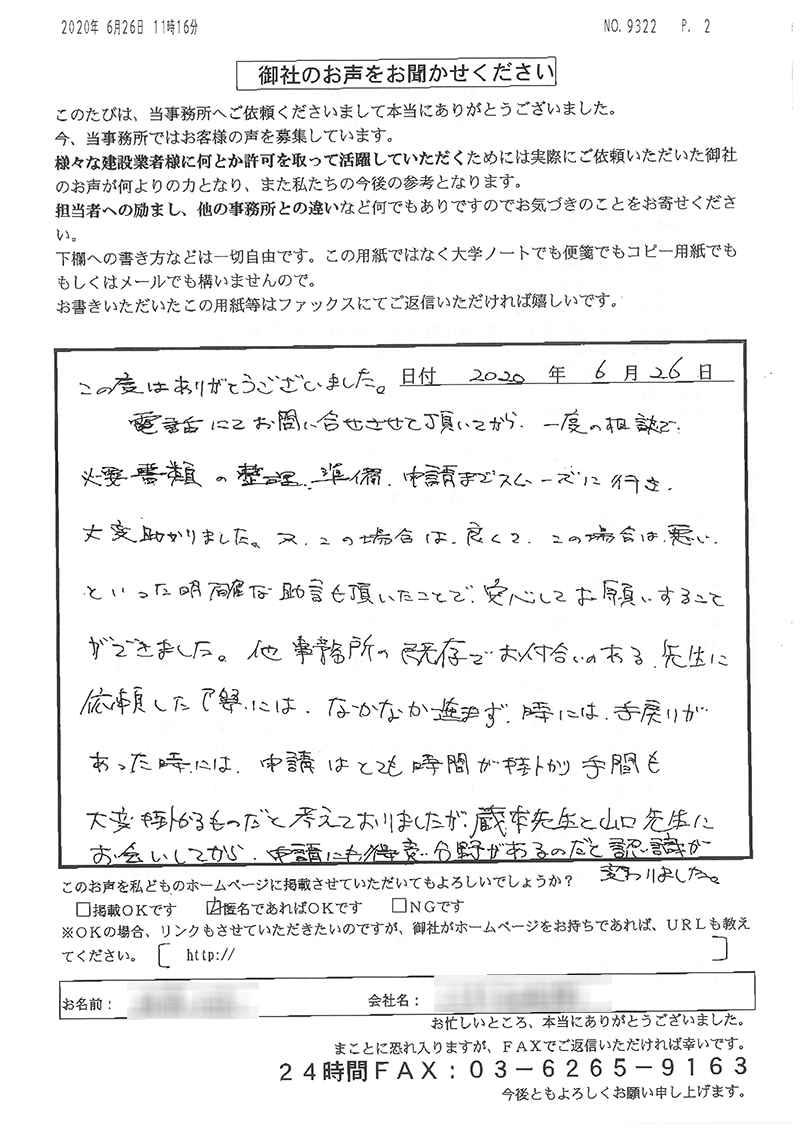 2020年 6月26日 11時16分 NO.9322 P. 2
御社のお声をお聞かせください
このたびは、当事務所へご依頼くださいまして本当にありがとうございました。
今、当事務所ではお客様の声を募集しています。
様々な建設業者様に何とか許可を取って活躍していただくためには実際にご依頼いただいた御社
のお声が何よりの力となり、また私たちの今後の参考となります。
担当者への励まし、他の事務所との違いなど何でもありですのでお気づきのことをお寄せくださ
い。
下欄への書き方などは一切自由です。この用紙ではなく大学ノートでも便箋でもコピー用紙でも
もしくはメールでも構いませんので。
お書きいただいたこの用紙等はファックスにてご返信いただければ嬉しいです。
日付 2020 年 6 月 26 日
この度はありがとうございました。
電話にてお問い合せさせて頂いてから、一度の相談で、
必要書類の整理、準備、申請までスムーズに行き、
大変助かりました。又、この場合は、良くて、この場合は、悪い、
といった明確な助言も頂いたことで、安心してお願いすること
ができました。他事務所の既存でお付合いのある、先生に
依頼した際には、なかなか進まず、時には、手戻りが
あった時には、申請はとても時間が掛かり手間も
大変掛かるものだと考えておりましたが、蔵本先生と山口先生に
お会いしてから、申請にも得意分野があるのだと認識が
変わりました。
このお声を私どものホームページに掲載させていただいてもよろしいでしょうか？
□掲載OKです ☑匿名であればOKです □NGです
※OKの場合、リンクもさせていただきたいのですが、御社がホームページをお持ちであれば、URLも教え
てください。［ http:// ］
お名前： 会社名：
お忙しいところ、本当にありがとうございました。
まことに恐れ入りますが、FAXでご返信いただければ幸いです。
24時間FAX：03-6265-9163
今後ともよろしくお願い申し上げます。